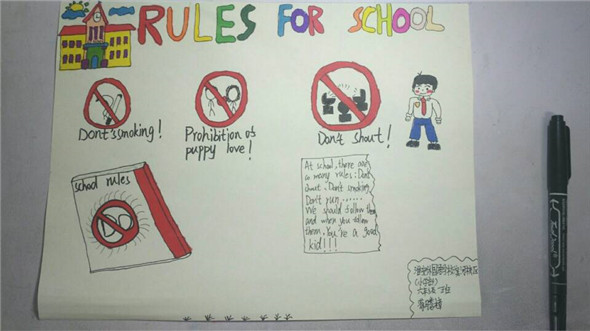 RULES FOR SCHOOL
Dont smoking!
Prohibition of
puppy love!
Don't shout!
school rules
NO
At school, there are
many rules: Dont
shout. Don't smoking
Don't run......
We should follow them
and when you follow
them. You're a good
kid!!!
(小学部)